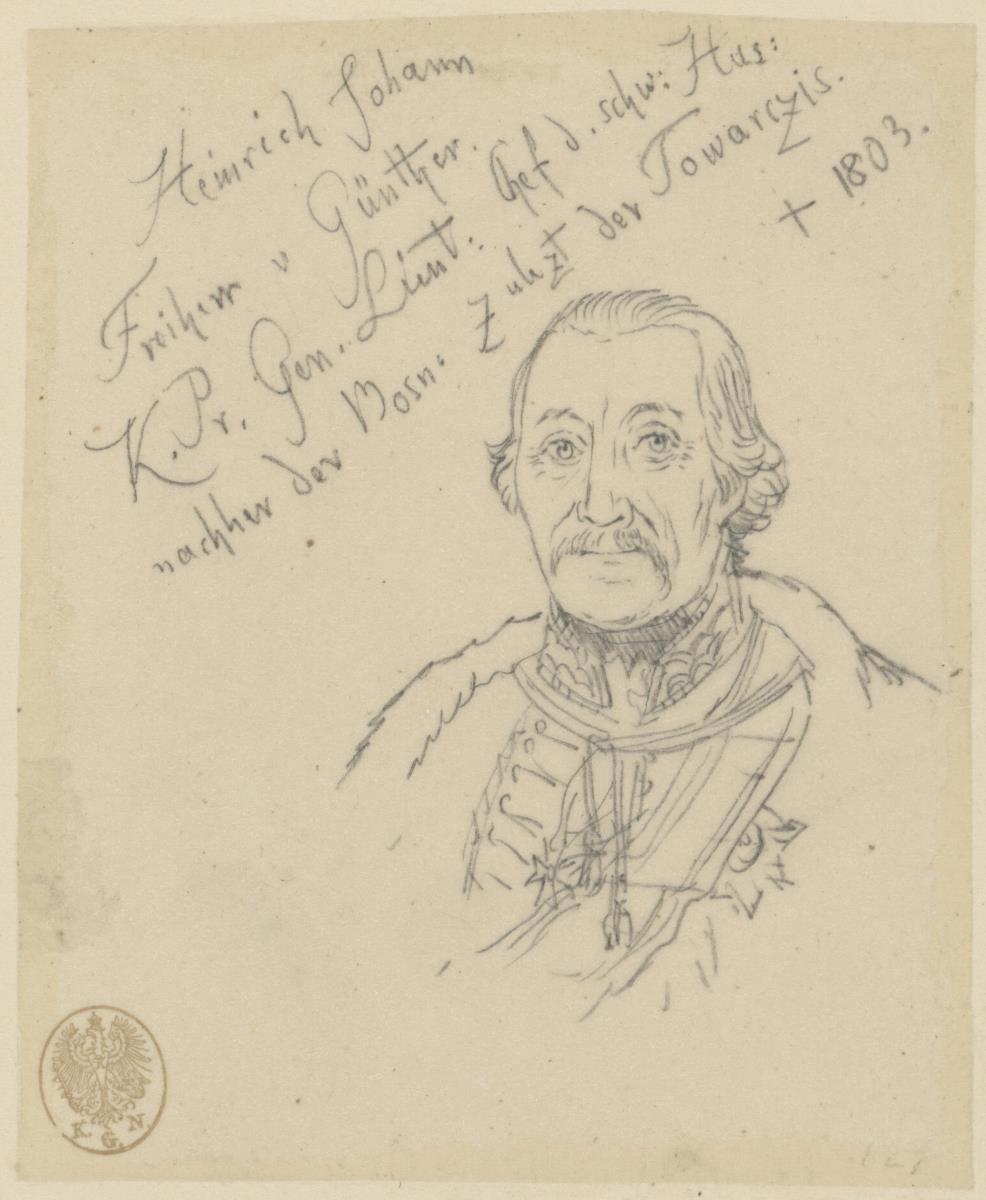 Heinrich Johann
Freiherr v Günther.
K. Pr. Gen. Lieut: Chef d. schw: Hus:
nachher der Bosn: Zuletzt der Towarczis.
+ 1803.
K. G. N.